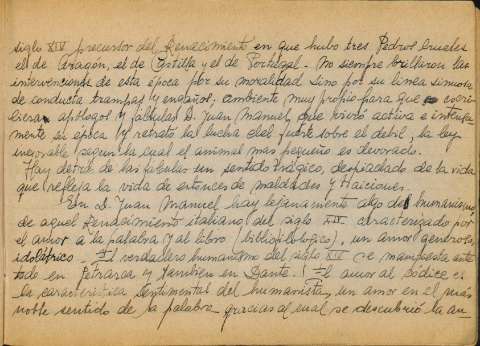 siglo XIV precursor del Renacimiento en que hubo tres Pedros crueles
el de Aragón, el de Castilla y el de Portugal. No siempre brillaron las
intervenciones de esta época por su moralidad sino por su linea sinuosa
de conducta trampas y engaños; ambiente muy propio para que escri
biera apólogos y fábulas D. Juan Manuel, que vivió activa e intensa
mente su época y retrató la lucha del fuerte sobre el debil, la ley
inexorable según la cual el animal mas pequeño es devorado.
Hay detrás de las fabulas un sentido trágico, despiadado de la vida
que refleja la vida de entonces de maldades y traiciones.
En D. Juan Manuel hay lejanamente algo del humanismo
de aquel Renacimiento italiano del siglo XIV caracterizado por
el amor a la palabra y al libro (bibliofilologico), un amor generoso,
idolátrico. El verdadero humanismo del siglo XIV se manifiesta ante
todo en Petrarca y tambien en Dante. El amor al códice es
la caracteristica sentimental del humanista, un amor en el más
noble sentido de la palabra gracias al cual se descubrió la an